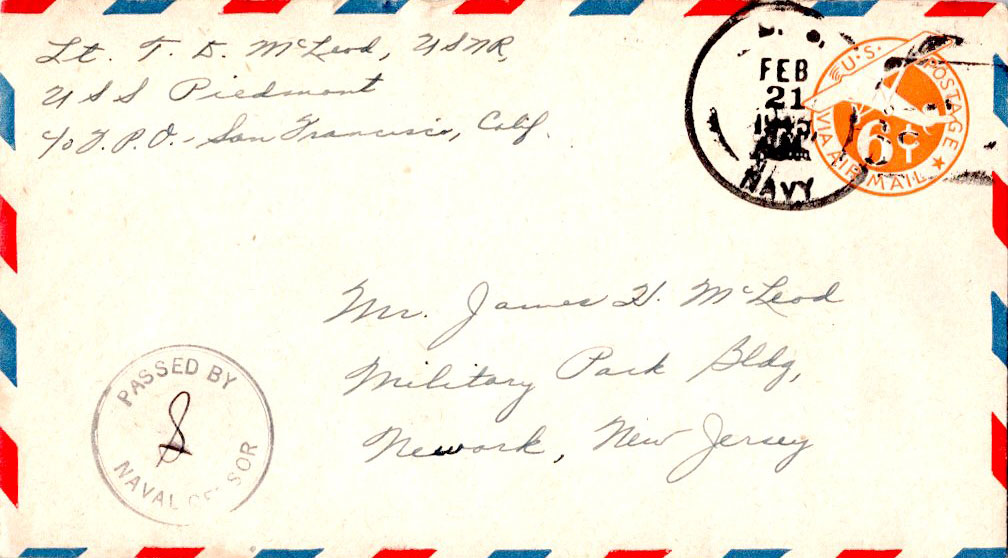 Lt. T. D. McLeod, USNR,
USS Piedmont
c/o F.P.O. - San Francisco, Calif.
FEB
21
1945
NAVY
U.S. POSTAGE
6¢
VIA AIR MAIL
Mr. James H. McLeod
Military Park Bldg,
Newark, New Jersey
PASSED BY
NAVAL CENSOR